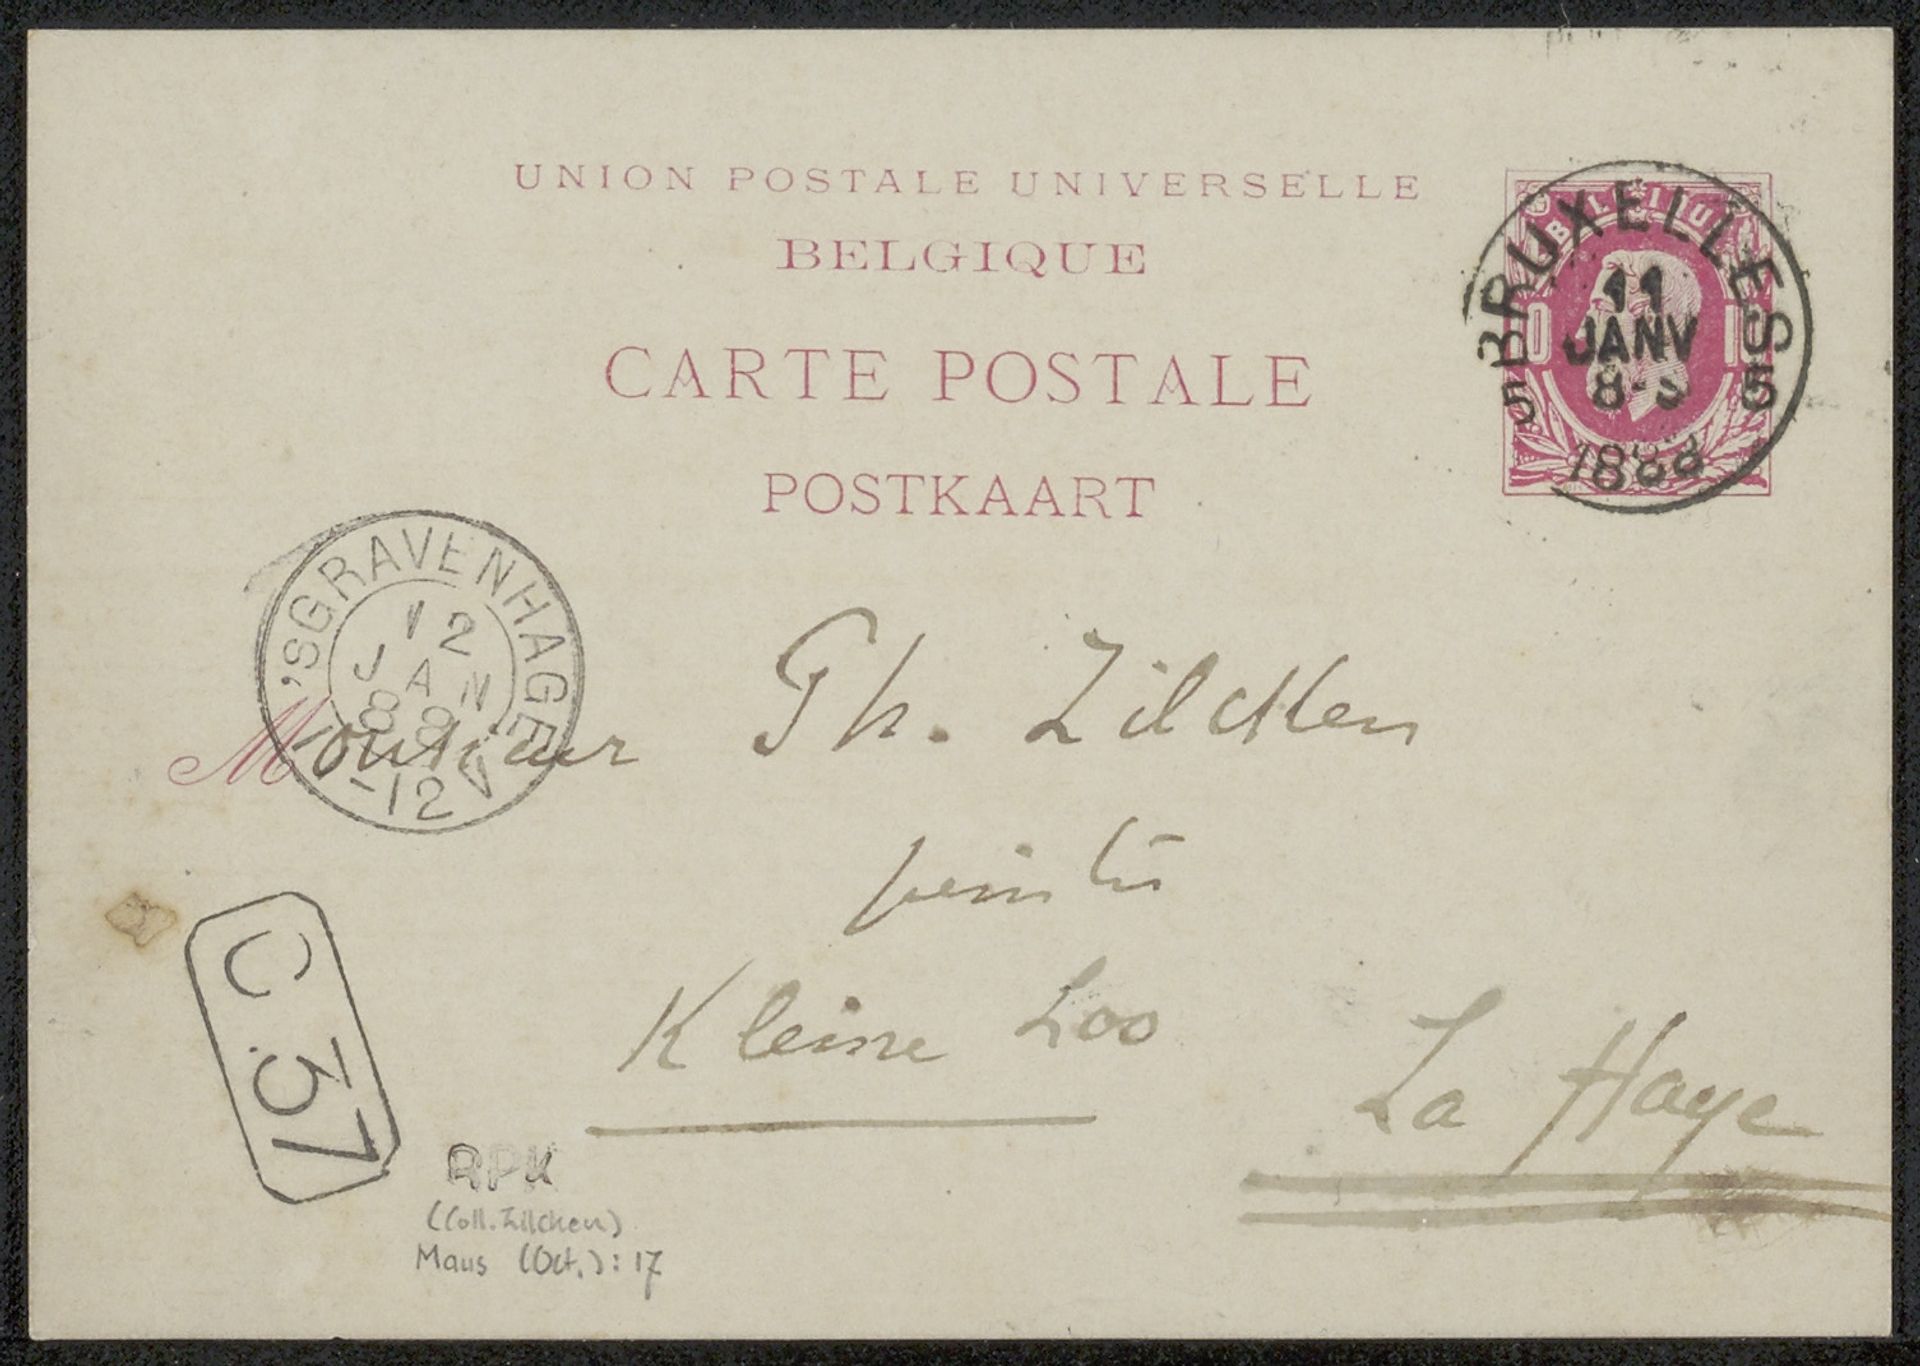 UNION POSTALE UNIVERSELLE
BELGIQUE
CARTE POSTALE
POSTKAART
BRUXELLES 5
11
JANV
8-S
1888
'SGRAVENHAGE
12
JAN
88
-12V
Monsieur Ph. Zilcken
peintre
Kleine Loo
La Haye
C.37
RPK
(Coll. Zilcken)
Maus (Oct.): 17